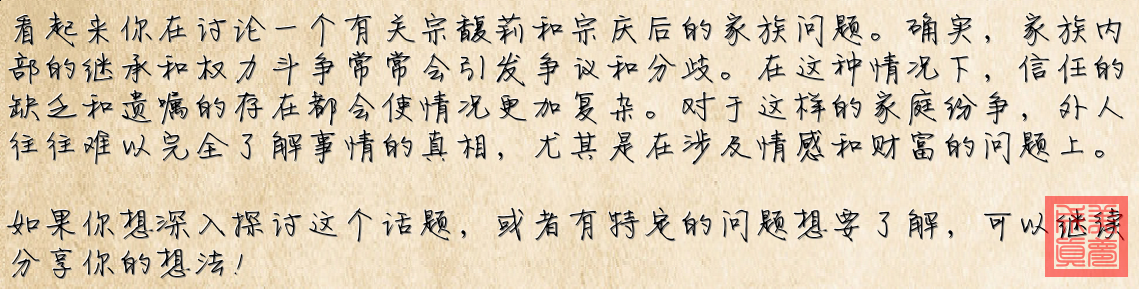 看起来你在讨论一个有关宗馥莉和宗庆后的家族问题。确实，家族内
部的继承和权力斗争常常会引发争议和分歧。在这种情况下，信任的
缺乏和遗嘱的存在都会使情况更加复杂。对于这样的家庭纷争，外人
往往难以完全了解事情的真相，尤其是在涉及情感和财富的问题上。
如果你想深入探讨这个话题，或者有特定的问题想要了解，可以继续
分享你的想法！